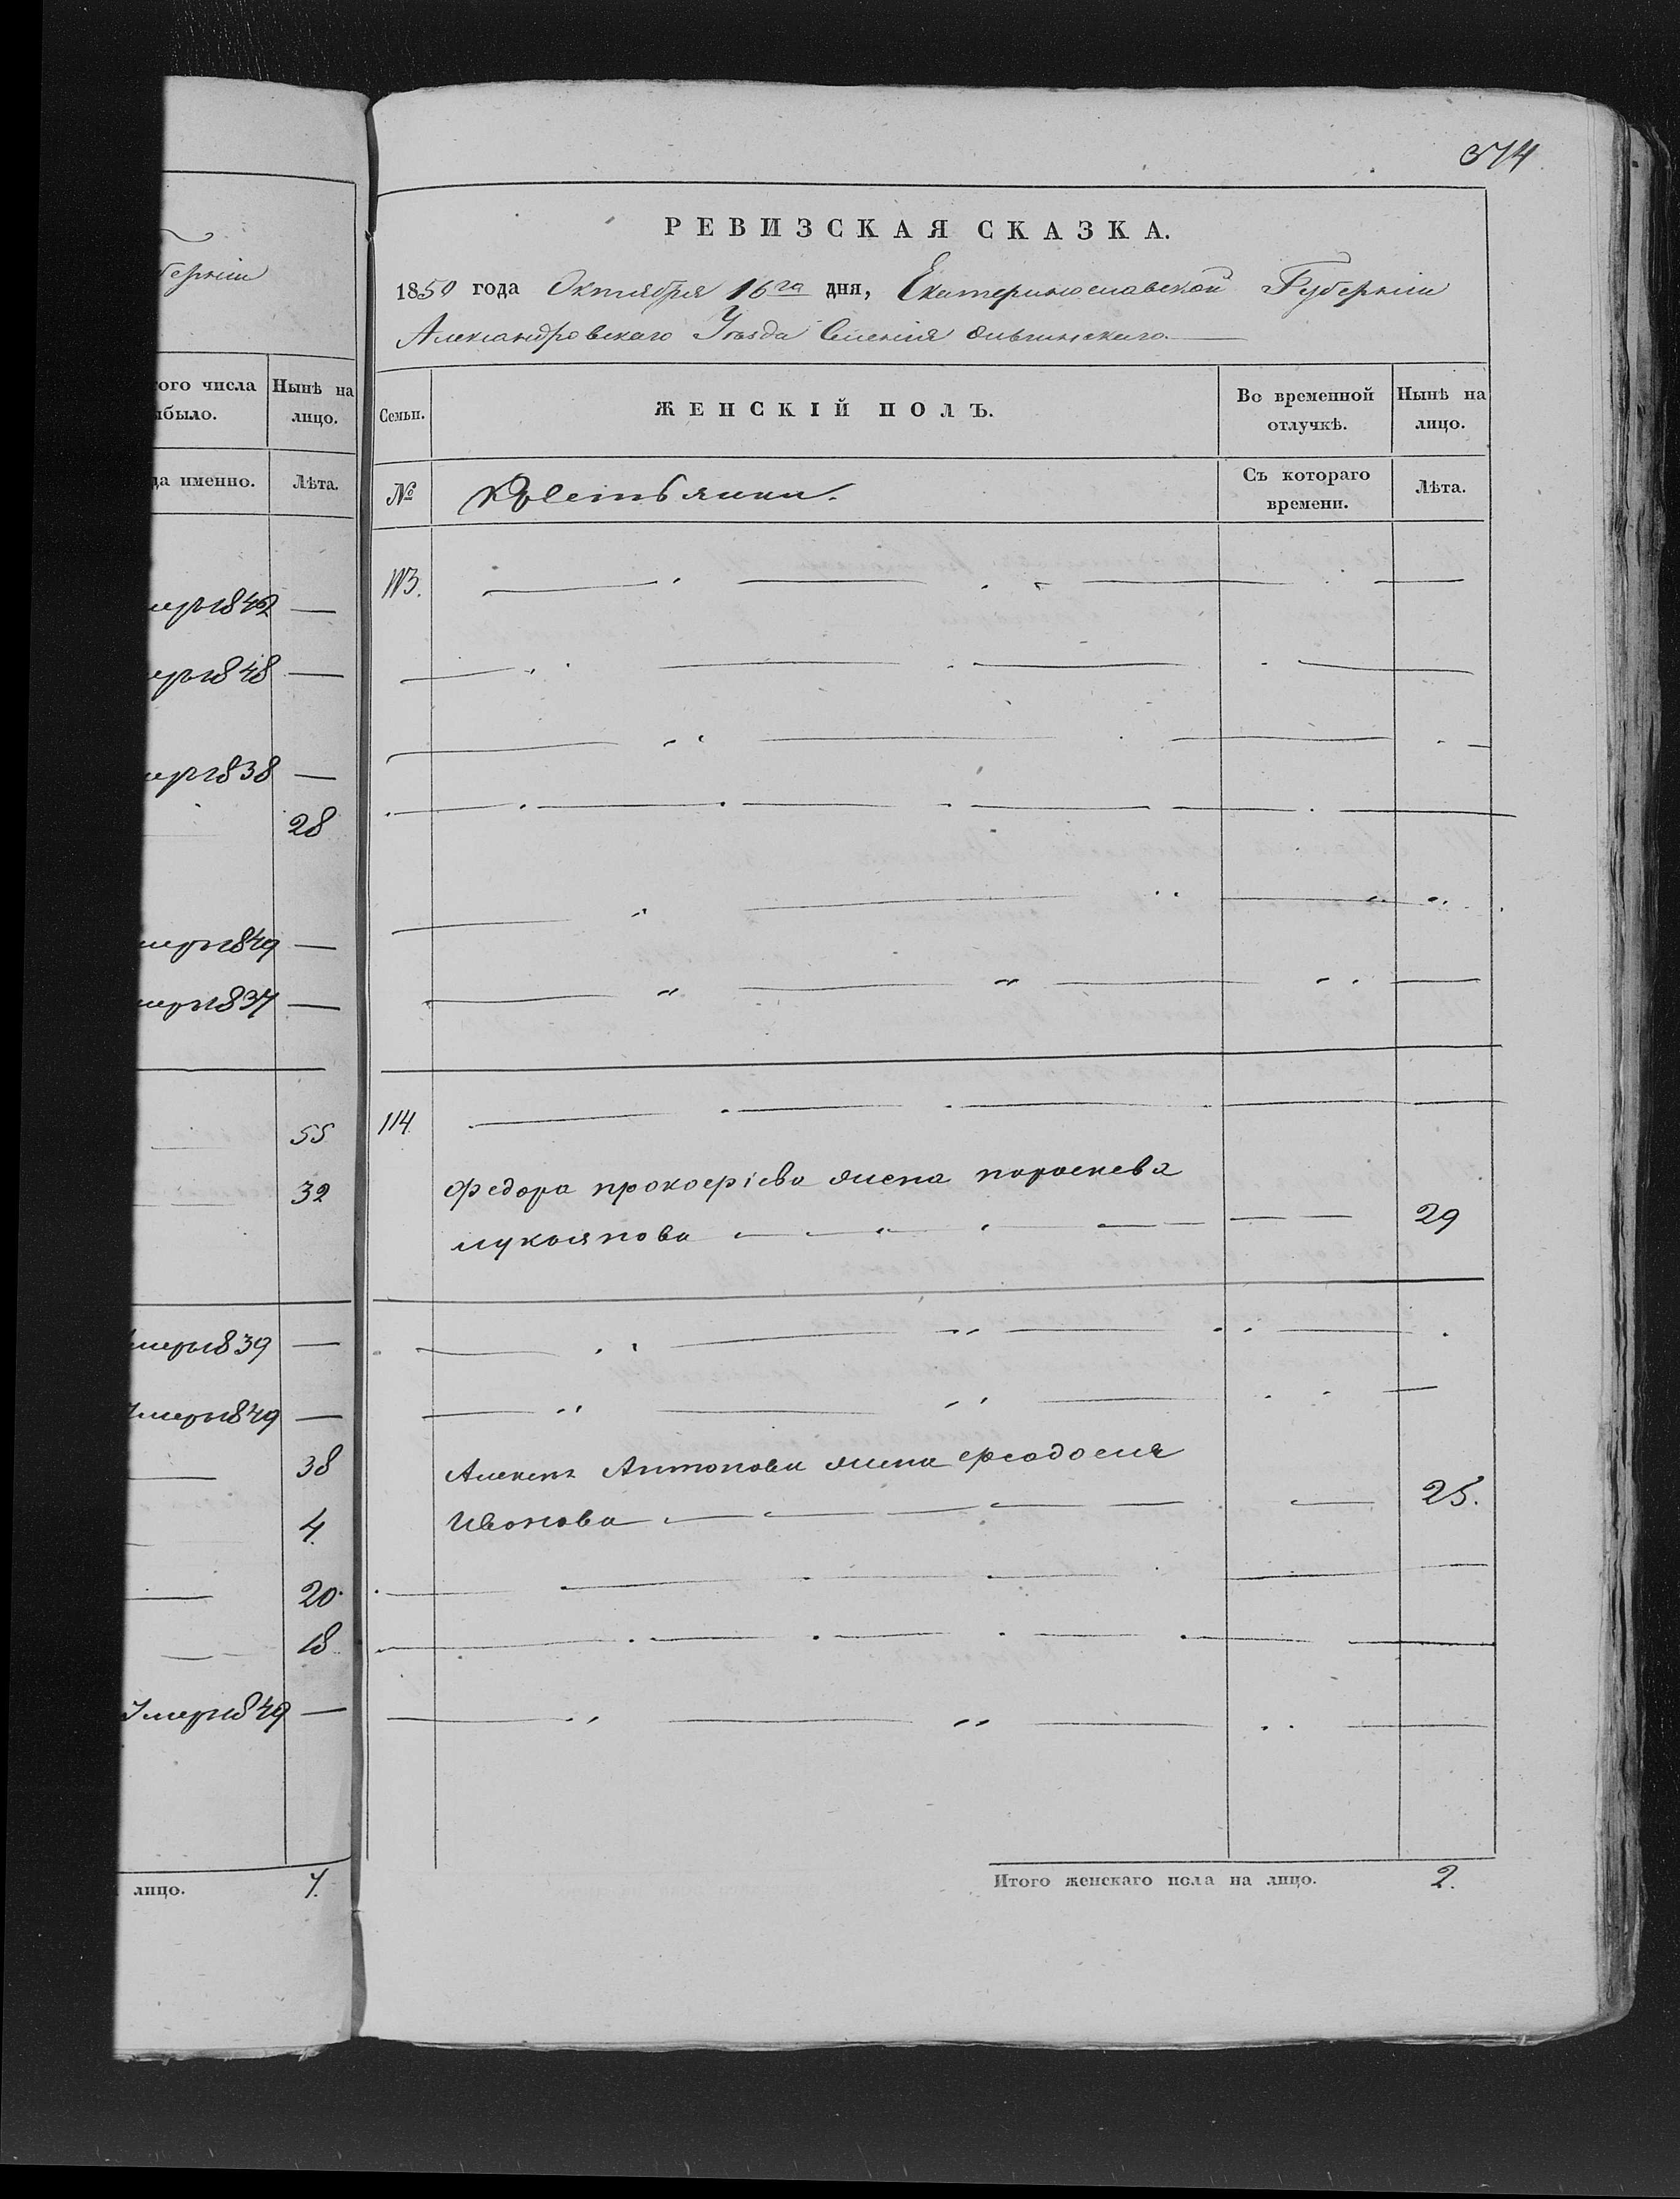 губерніи
того числа
Нынѣ на
ибыло.
лицо.
да именно.
Лѣта.
меръ 1842 —
меръ 1848 —
меръ 1838 —
28
меръ 1849 —
меръ 1837 —
55
32
умеръ 1839 —
Умеръ 1849 —
38
4.
20.
18
Умеръ 1849 —
лицо. 7.
374
РЕВИЗСКАЯ СКАЗКА.
1850 года Октября 16го дня, Екатеринославской Губерніи
Александровскаго Уѣзда Селенія
Семьи.
ЖЕНСКІЙ ПОЛЪ.
Во временной
отлучкѣ.
Нынѣ на
лицо.
№
крестьянки.
Съ котораго
времени.
Лѣта.
113.
114
Федора прокофіева жена параскева
лукьянова 29
Алексея Антонова жена феодосия
Иванова 25.
Итого женскаго пола на лицо. 2.